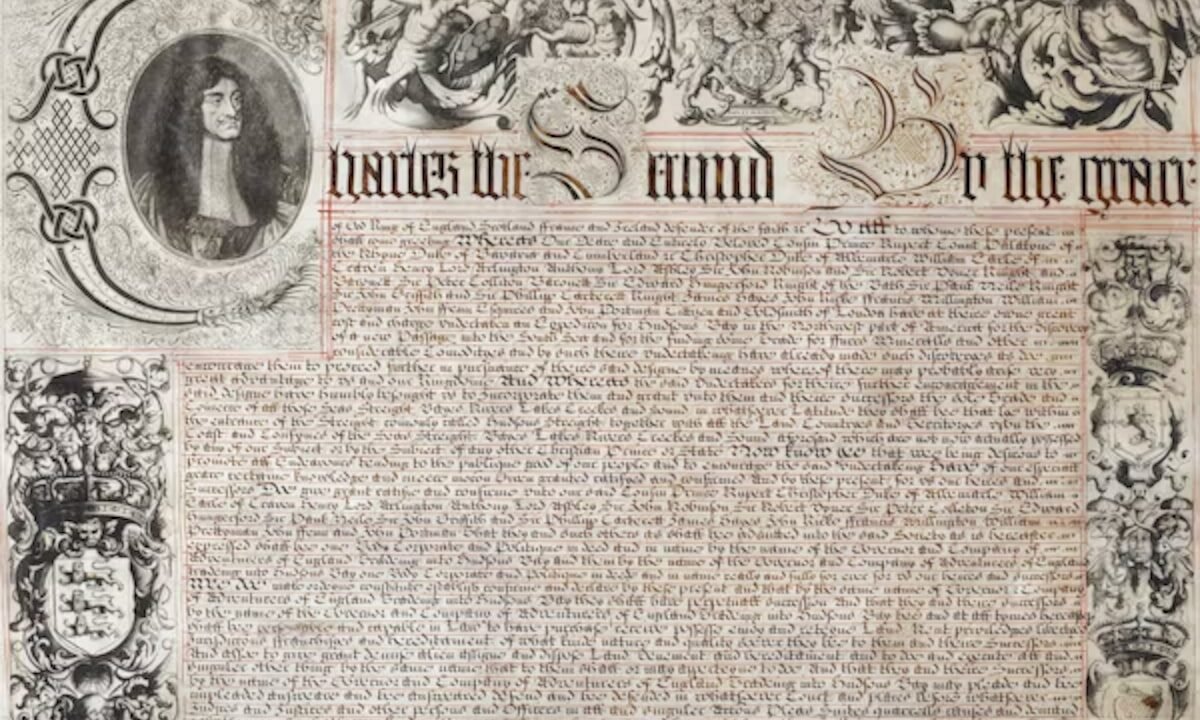 Charles the Second By the grace
of God King of England Scotland ffrance and Ireland defender of the faith &c To all to whome these present
shall come greeting Whereas Our Deare and Entirely Beloved Cousin Prince Rupert Count Palatyne of
the Rhyne Duke of Bavaria and Cumberland &c Christopher Duke of Albemarle William Earle of
Craven Henry Lord Arlington Anthony Lord Ashley Sir John Robinson and Sir Robert Vyner Knight and
Baronett Sir Peter Colliton Baronett Sir Edward Hungerford Knight of the Bath Sir Paul Neile Knight
Sir John Griffith and Sir Phillip Carterett Knight James Hayes John Kirke ffrancis Millington William
Prettyman John ffenn Esquires and John Portman Cittizen and Goldsmith of London have at theire owne great
cost and charge undertaken an Expedicon for Hudsons Bay in the Northwest part of America for the discovery
of a new Passage into the South Sea and for the finding some Trade for ffurrs Mineralls and other
considerable Comodityes and by such theire undertaking have already made such discoveryes as doe
encourage them to proceed further in pursuance of theire said designe by meanes whereof there may probably arise very
great advantage to us and our Kingdome And Whereas the said undertakers for theire further encouragement in the
said designe have humbly besought us to Incorporate them and grant unto them and theire successors the sole Trade and
Comerce of all those Seas Streight Bayes Rivers Lakes Creekes and Sound in whatsoever Latitude they shall bee that lie within
the entrance of the Streight comonly called Hudsons Streight together with all the Land Countryes and Territoryes upon the
Coast and Confynes of the Seas Streight Bayes Lakes Rivers Creekes and Sound aforesaid which are not now actually possessed
by any of our Subject or by the Subject of any other Christian Prince or State Now know yee that wee being desirous to
promote all Endeavours tending to the publique good of our people and to encourage the said undertaking Have of our especiall
grace certaine knowledge and meere mocon Given granted ratifyed and confirmed And by these present for us our heires and
Successors Doe give grant ratifie and confirme unto our said Cousin Prince Rupert Christopher Duke of Albemarle William
Earle of Craven Henry Lord Arlington Anthony Lord Ashley Sir John Robinson Sir Robert Vyner Sir Peter Colleton Sir Edward
Hungerford Sir Paul Neile Sir John Griffith and Sir Phillip Carterett James Hayes John Kirke ffrancis Millington William
Prettyman John ffenn and John Portman That they and such others as shall bee admitted into the said Society as is hereafter
expressed shall bee one Body Corporate and Politique in deed and in name by the name of the Governor and Company of
Adventurers of England Tradeing into Hudsons Bay and them by the name of the Governor and Company of Adventurers of England
Tradeing into Hudsons Bay one Body Corporate and Politique in deede and in name really and fully for ever for us our heires and successors
Wee Doe make ordeyne constitute establish confirme and declare by these present and that by the same name of Governor &amp; Company
of Adventurers of England Tradeing into Hudsons Bay they shall have perpetuall succession And that they and theire successors
by the name of the Governor and Company of Adventurers of England Tradeing into Hudsons Bay bee and at all tymes hereafter
shall bee personable and capable in Law to have purchase receive possesse enjoy and reteyne Land Rent priviledges libertyes
Jurisdiccons ffranchyses and hereditament of what kinde nature and quality soever they bee to them and theire Successors
And alsoe to give grant demise alien assigne and dispose Land Tenement and hereditament and to doe and execute all and
singuler other thing by the same name that to them shall or may apperteyne to doe And that they and theire Successors
by the name of the Governor and Company of Adventurers of England Tradeing into Hudsons Bay may pleade and bee
impleaded answeare and bee answeared defend and bee defended in whatsoever Court and place before whatsoever
Judges and Justices and other persons and Officers in all and singuler Accons Pleas Suites quarrells causes and demand